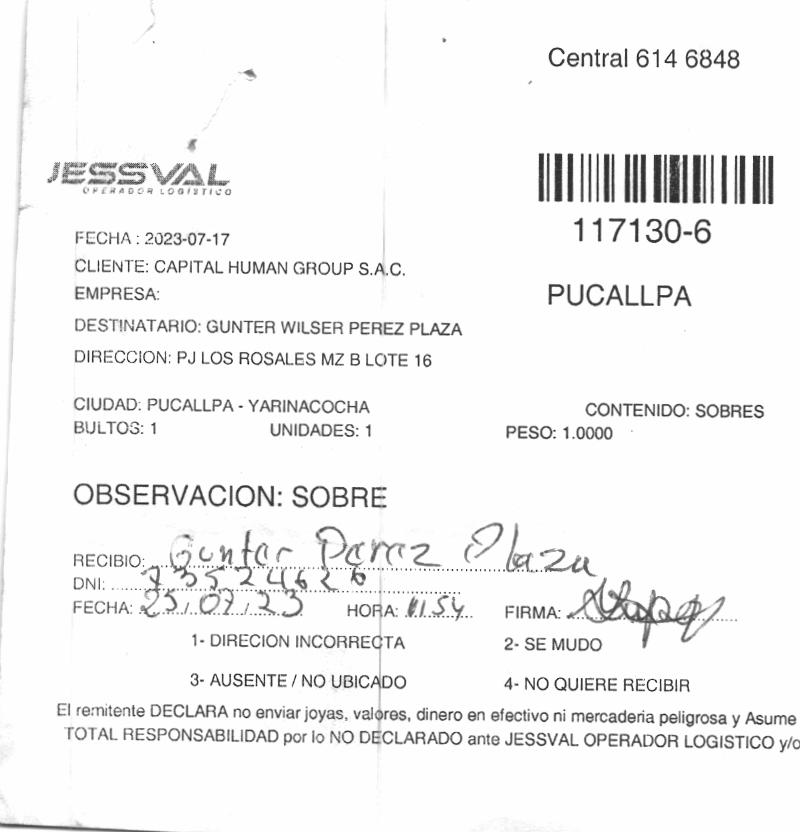 Central 614 6848
JESSVAL
OPERADOR LOGISTICO
117130-6
FECHA : 2023-07-17
CLIENTE: CAPITAL HUMAN GROUP S.A.C.
EMPRESA:
PUCALLPA
DESTINATARIO: GUNTER WILSER PEREZ PLAZA
DIRECCION: PJ LOS ROSALES MZ B LOTE 16
CIUDAD: PUCALLPA - YARINACOCHA
CONTENIDO: SOBRES
BULTOS: 1 UNIDADES: 1 PESO: 1.0000
OBSERVACION: SOBRE
RECIBIO: Gunter Perez Plaza
DNI: 73524626
FECHA: 25/07/23 HORA: 11:54 FIRMA:
1- DIRECION INCORRECTA 2- SE MUDO
3- AUSENTE / NO UBICADO 4- NO QUIERE RECIBIR
El remitente DECLARA no enviar joyas, valores, dinero en efectivo ni mercaderia peligrosa y Asume
TOTAL RESPONSABILIDAD por lo NO DECLARADO ante JESSVAL OPERADOR LOGISTICO y/o